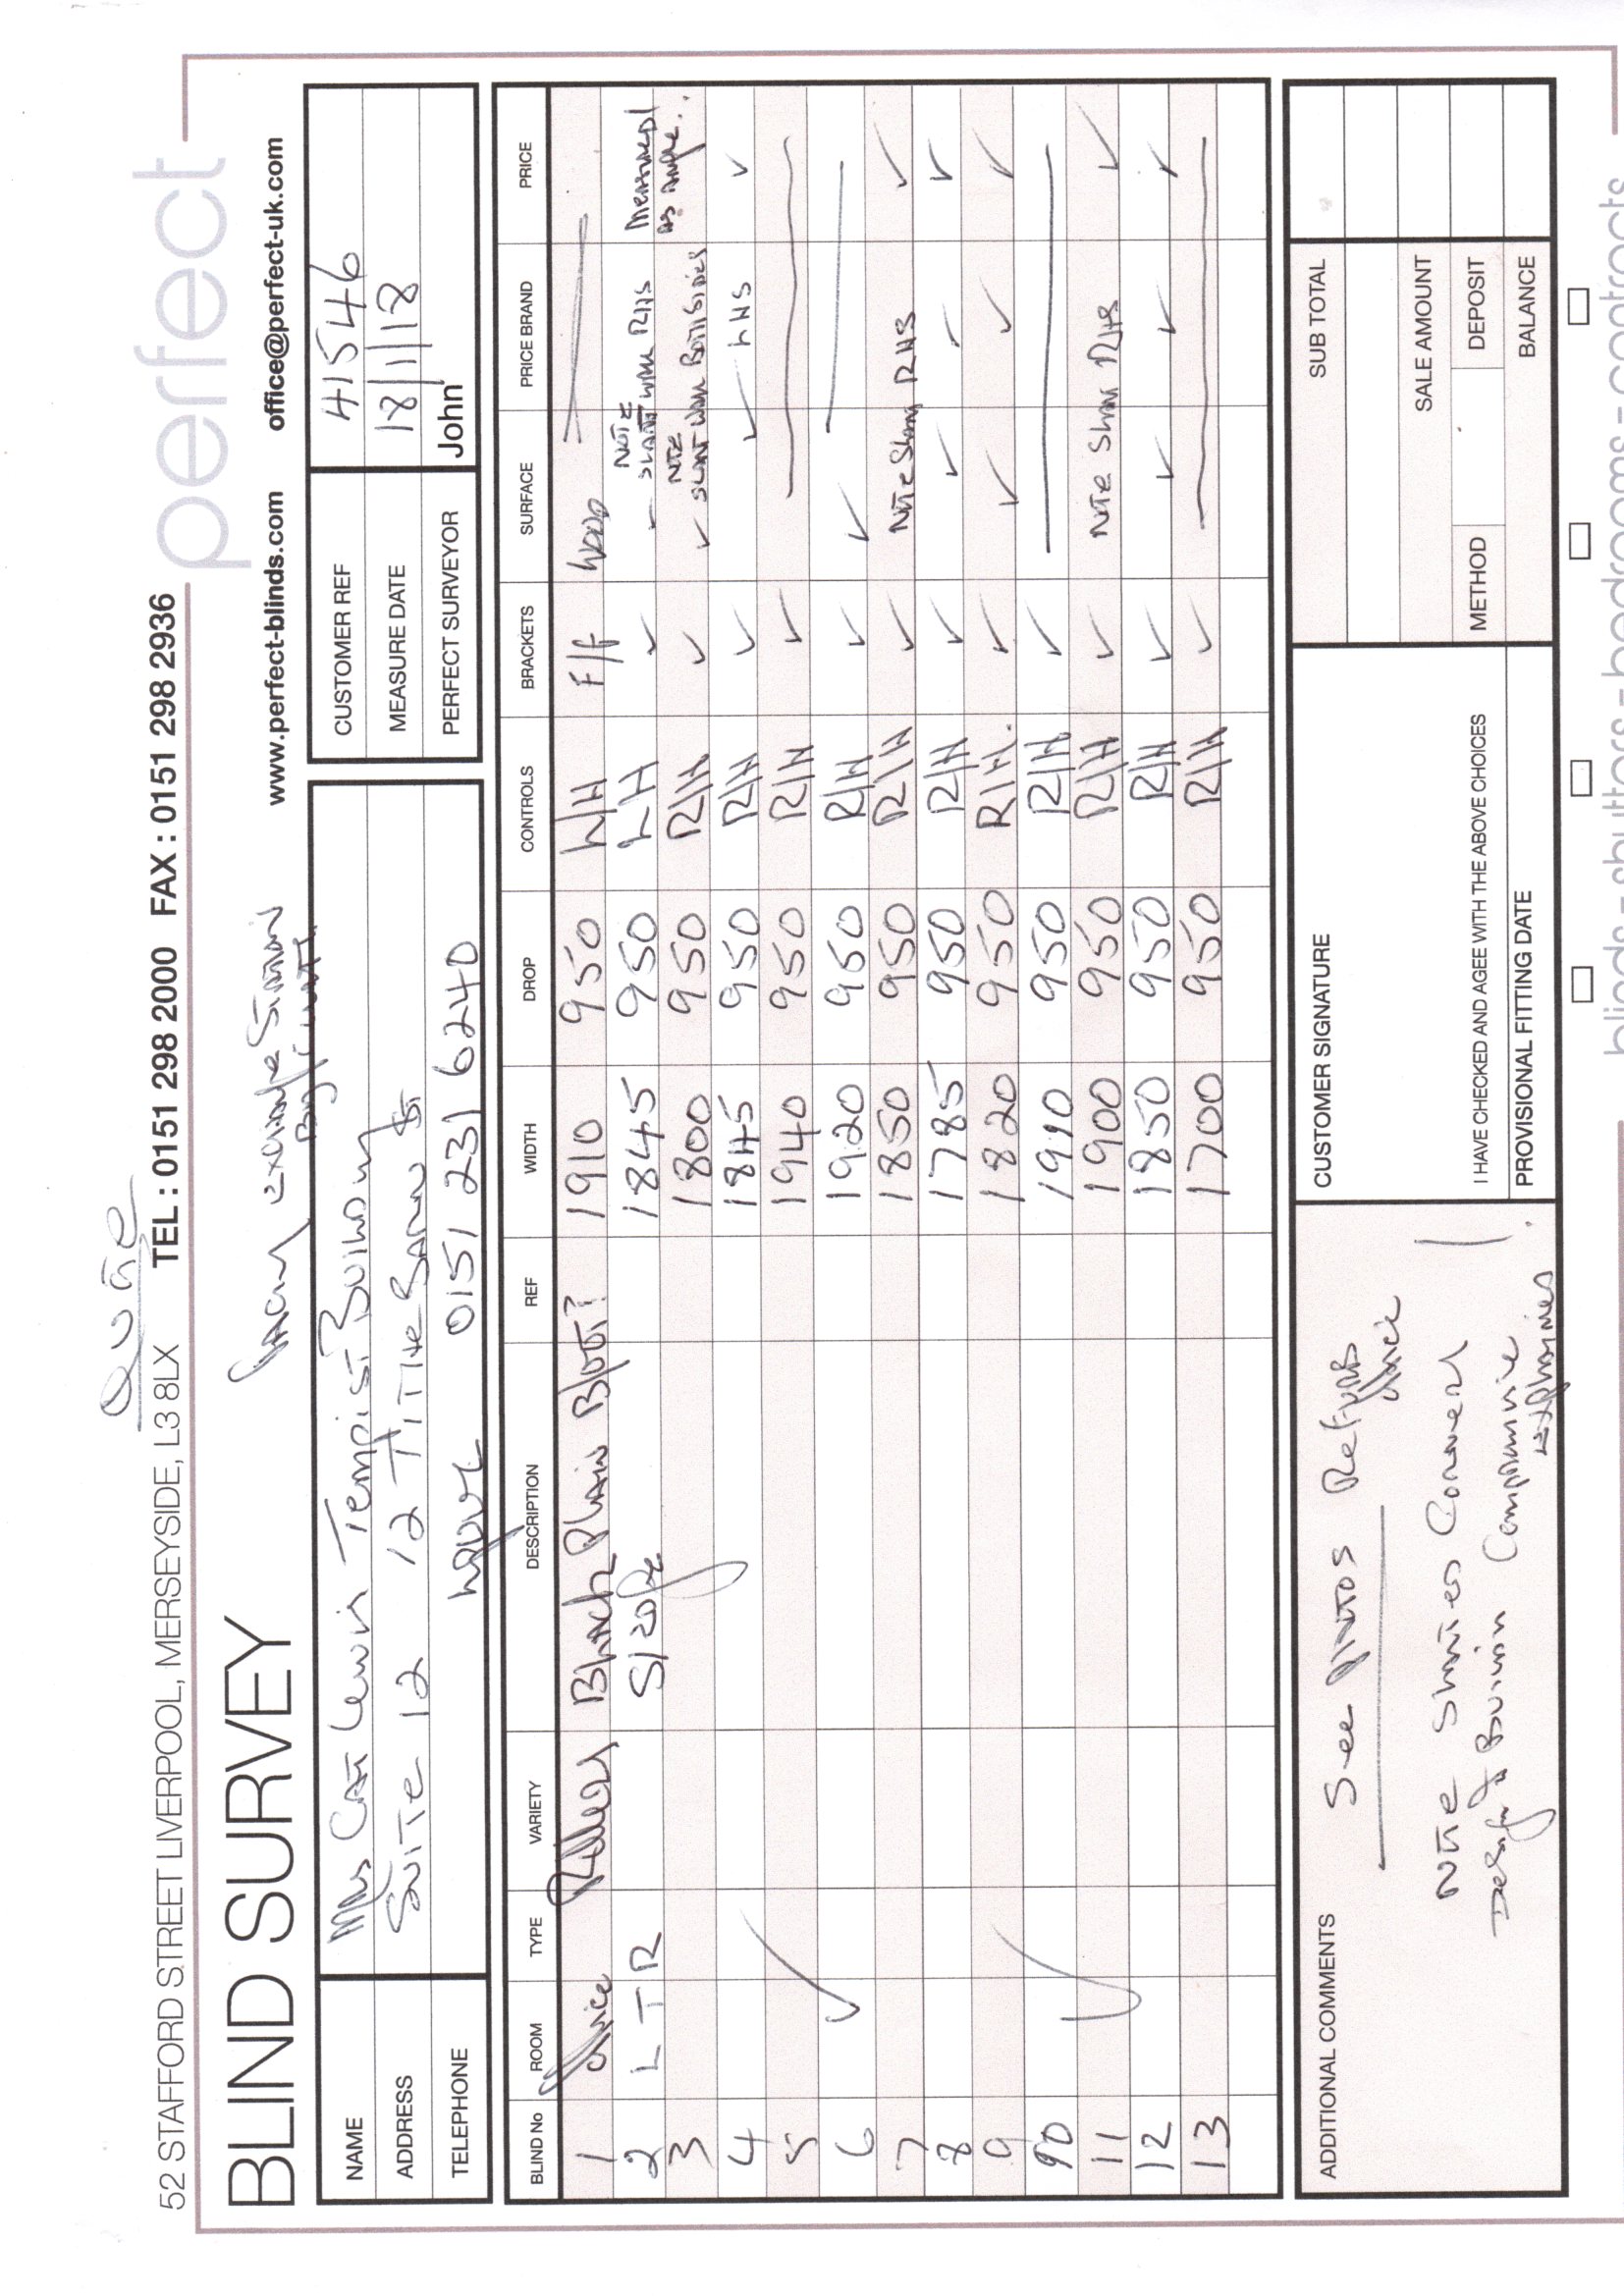 Quote
52 STAFFORD STREET LIVERPOOL, MERSEYSIDE, L3 8LX TEL : 0151 298 2000 FAX : 0151 298 2936
perfect
BLIND SURVEY
www.perfect-blinds.com office@perfect-uk.com
NAME Mrs Cat Lewis Tempist Building
ADDRESS Suite 12 12 Tithe Barn St
TELEPHONE 0151 231 6240
CUSTOMER REF 41546
MEASURE DATE 18/1/18
PERFECT SURVEYOR John
BLIND No ROOM TYPE VARIETY DESCRIPTION REF WIDTH DROP CONTROLS BRACKETS SURFACE PRICE BRAND PRICE
1 Office Roller Black Plain B/out? 1910 950 L/H F/f Wood
2 L T R 1845 950 L/H ✓ NOTE Slant Wall RHS Measured as
3 1800 950 R/H ✓ ✓ NOTE Slant Wall Both Sides
4 1845 950 R/H ✓ ✓ LHS ✓
5 1940 950 R/H ✓
6 ✓ 1920 950 R/H ✓ ✓
7 1850 950 R/H ✓ Note Slant RHS ✓
8 1785 950 R/H ✓ ✓ ✓ ✓
9 1820 950 R/H. ✓ ✓ ✓ ✓
10 1990 950 R/H ✓
11 1900 950 R/H ✓ Note Slant RHS ✓
12 1850 950 R/H ✓ ✓ ✓ ✓
13 1700 950 R/H ✓
ADDITIONAL COMMENTS
See Photos
Note
CUSTOMER SIGNATURE
I HAVE CHECKED AND AGEE WITH THE ABOVE CHOICES
PROVISIONAL FITTING DATE
SUB TOTAL
SALE AMOUNT
METHOD DEPOSIT
BALANCE
blinds - shutters - bedrooms - contracts